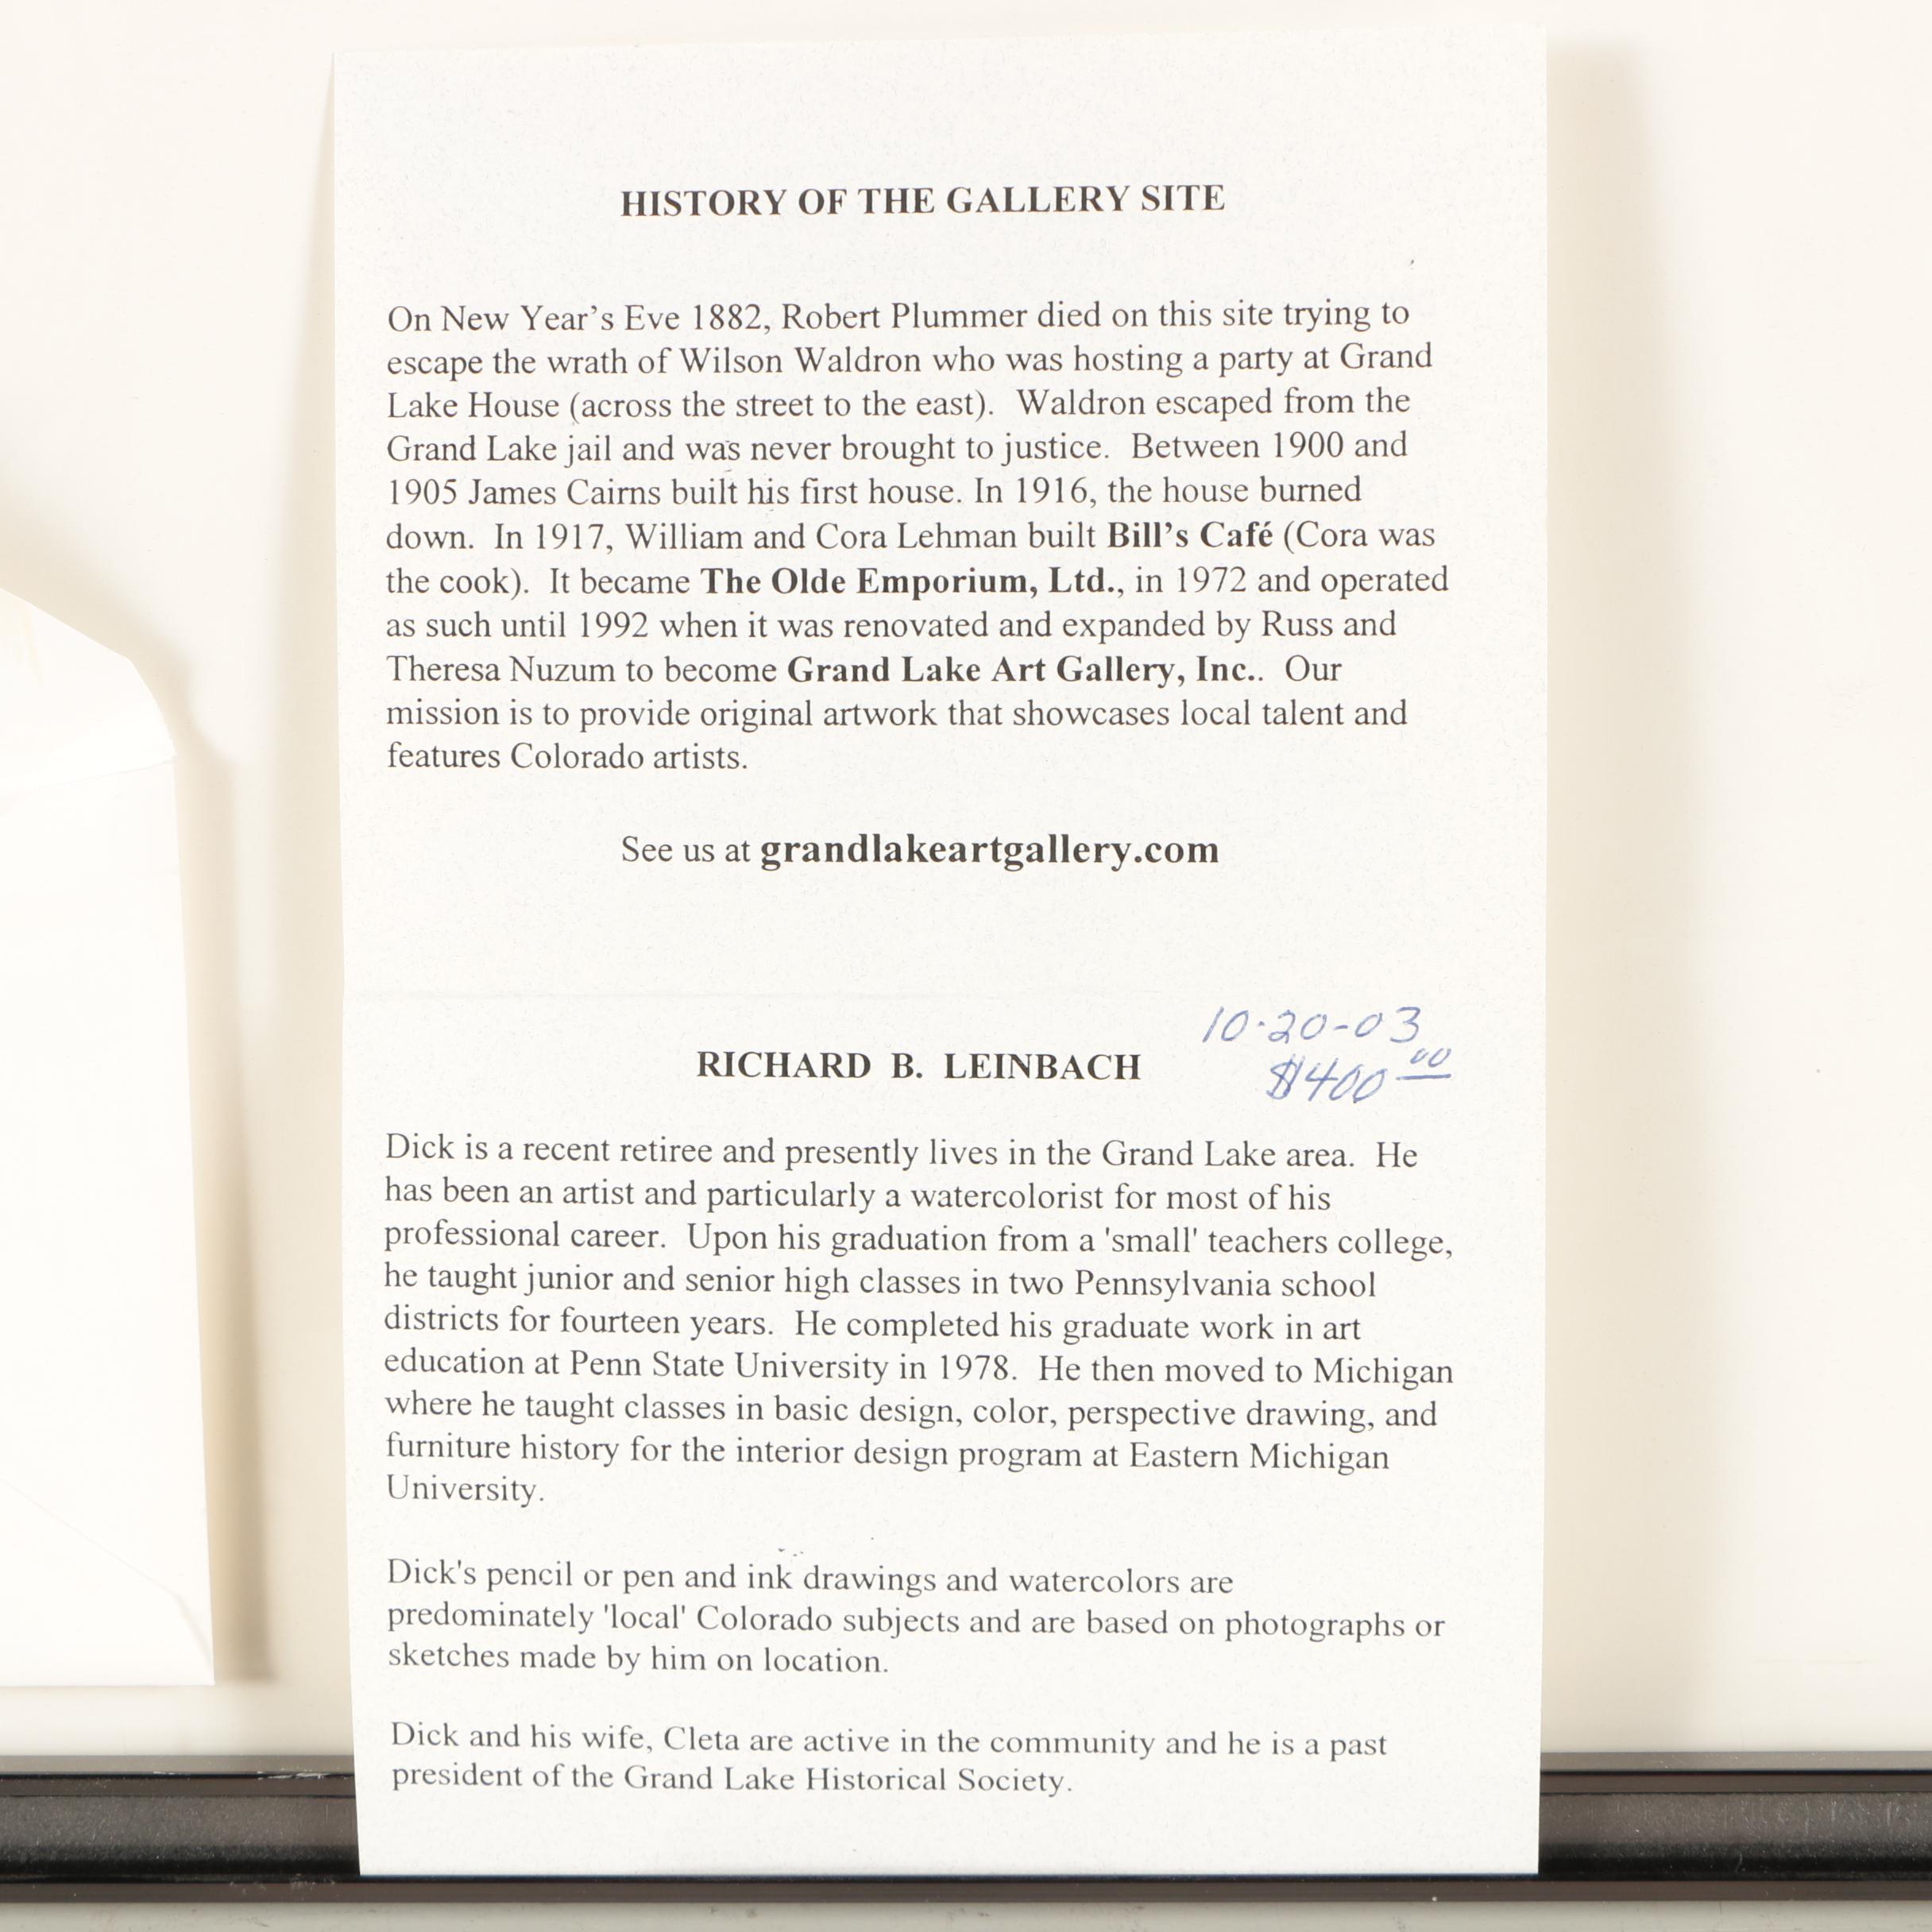 HISTORY OF THE GALLERY SITE
On New Year's Eve 1882, Robert Plummer died on this site trying to
escape the wrath of Wilson Waldron who was hosting a party at Grand
Lake House (across the street to the east).  Waldron escaped from the
Grand Lake jail and was never brought to justice.  Between 1900 and
1905 James Cairns built his first house. In 1916, the house burned
down.  In 1917, William and Cora Lehman built Bill's Café (Cora was
the cook).  It became The Olde Emporium, Ltd., in 1972 and operated
as such until 1992 when it was renovated and expanded by Russ and
Theresa Nuzum to become Grand Lake Art Gallery, Inc..  Our
mission is to provide original artwork that showcases local talent and
features Colorado artists.
See us at grandlakeartgallery.com
10-20-03
$400 00
RICHARD B. LEINBACH
Dick is a recent retiree and presently lives in the Grand Lake area.  He
has been an artist and particularly a watercolorist for most of his
professional career.  Upon his graduation from a 'small' teachers college,
he taught junior and senior high classes in two Pennsylvania school
districts for fourteen years.  He completed his graduate work in art
education at Penn State University in 1978.  He then moved to Michigan
where he taught classes in basic design, color, perspective drawing, and
furniture history for the interior design program at Eastern Michigan
University.
Dick's pencil or pen and ink drawings and watercolors are
predominately 'local' Colorado subjects and are based on photographs or
sketches made by him on location.
Dick and his wife, Cleta are active in the community and he is a past
president of the Grand Lake Historical Society.